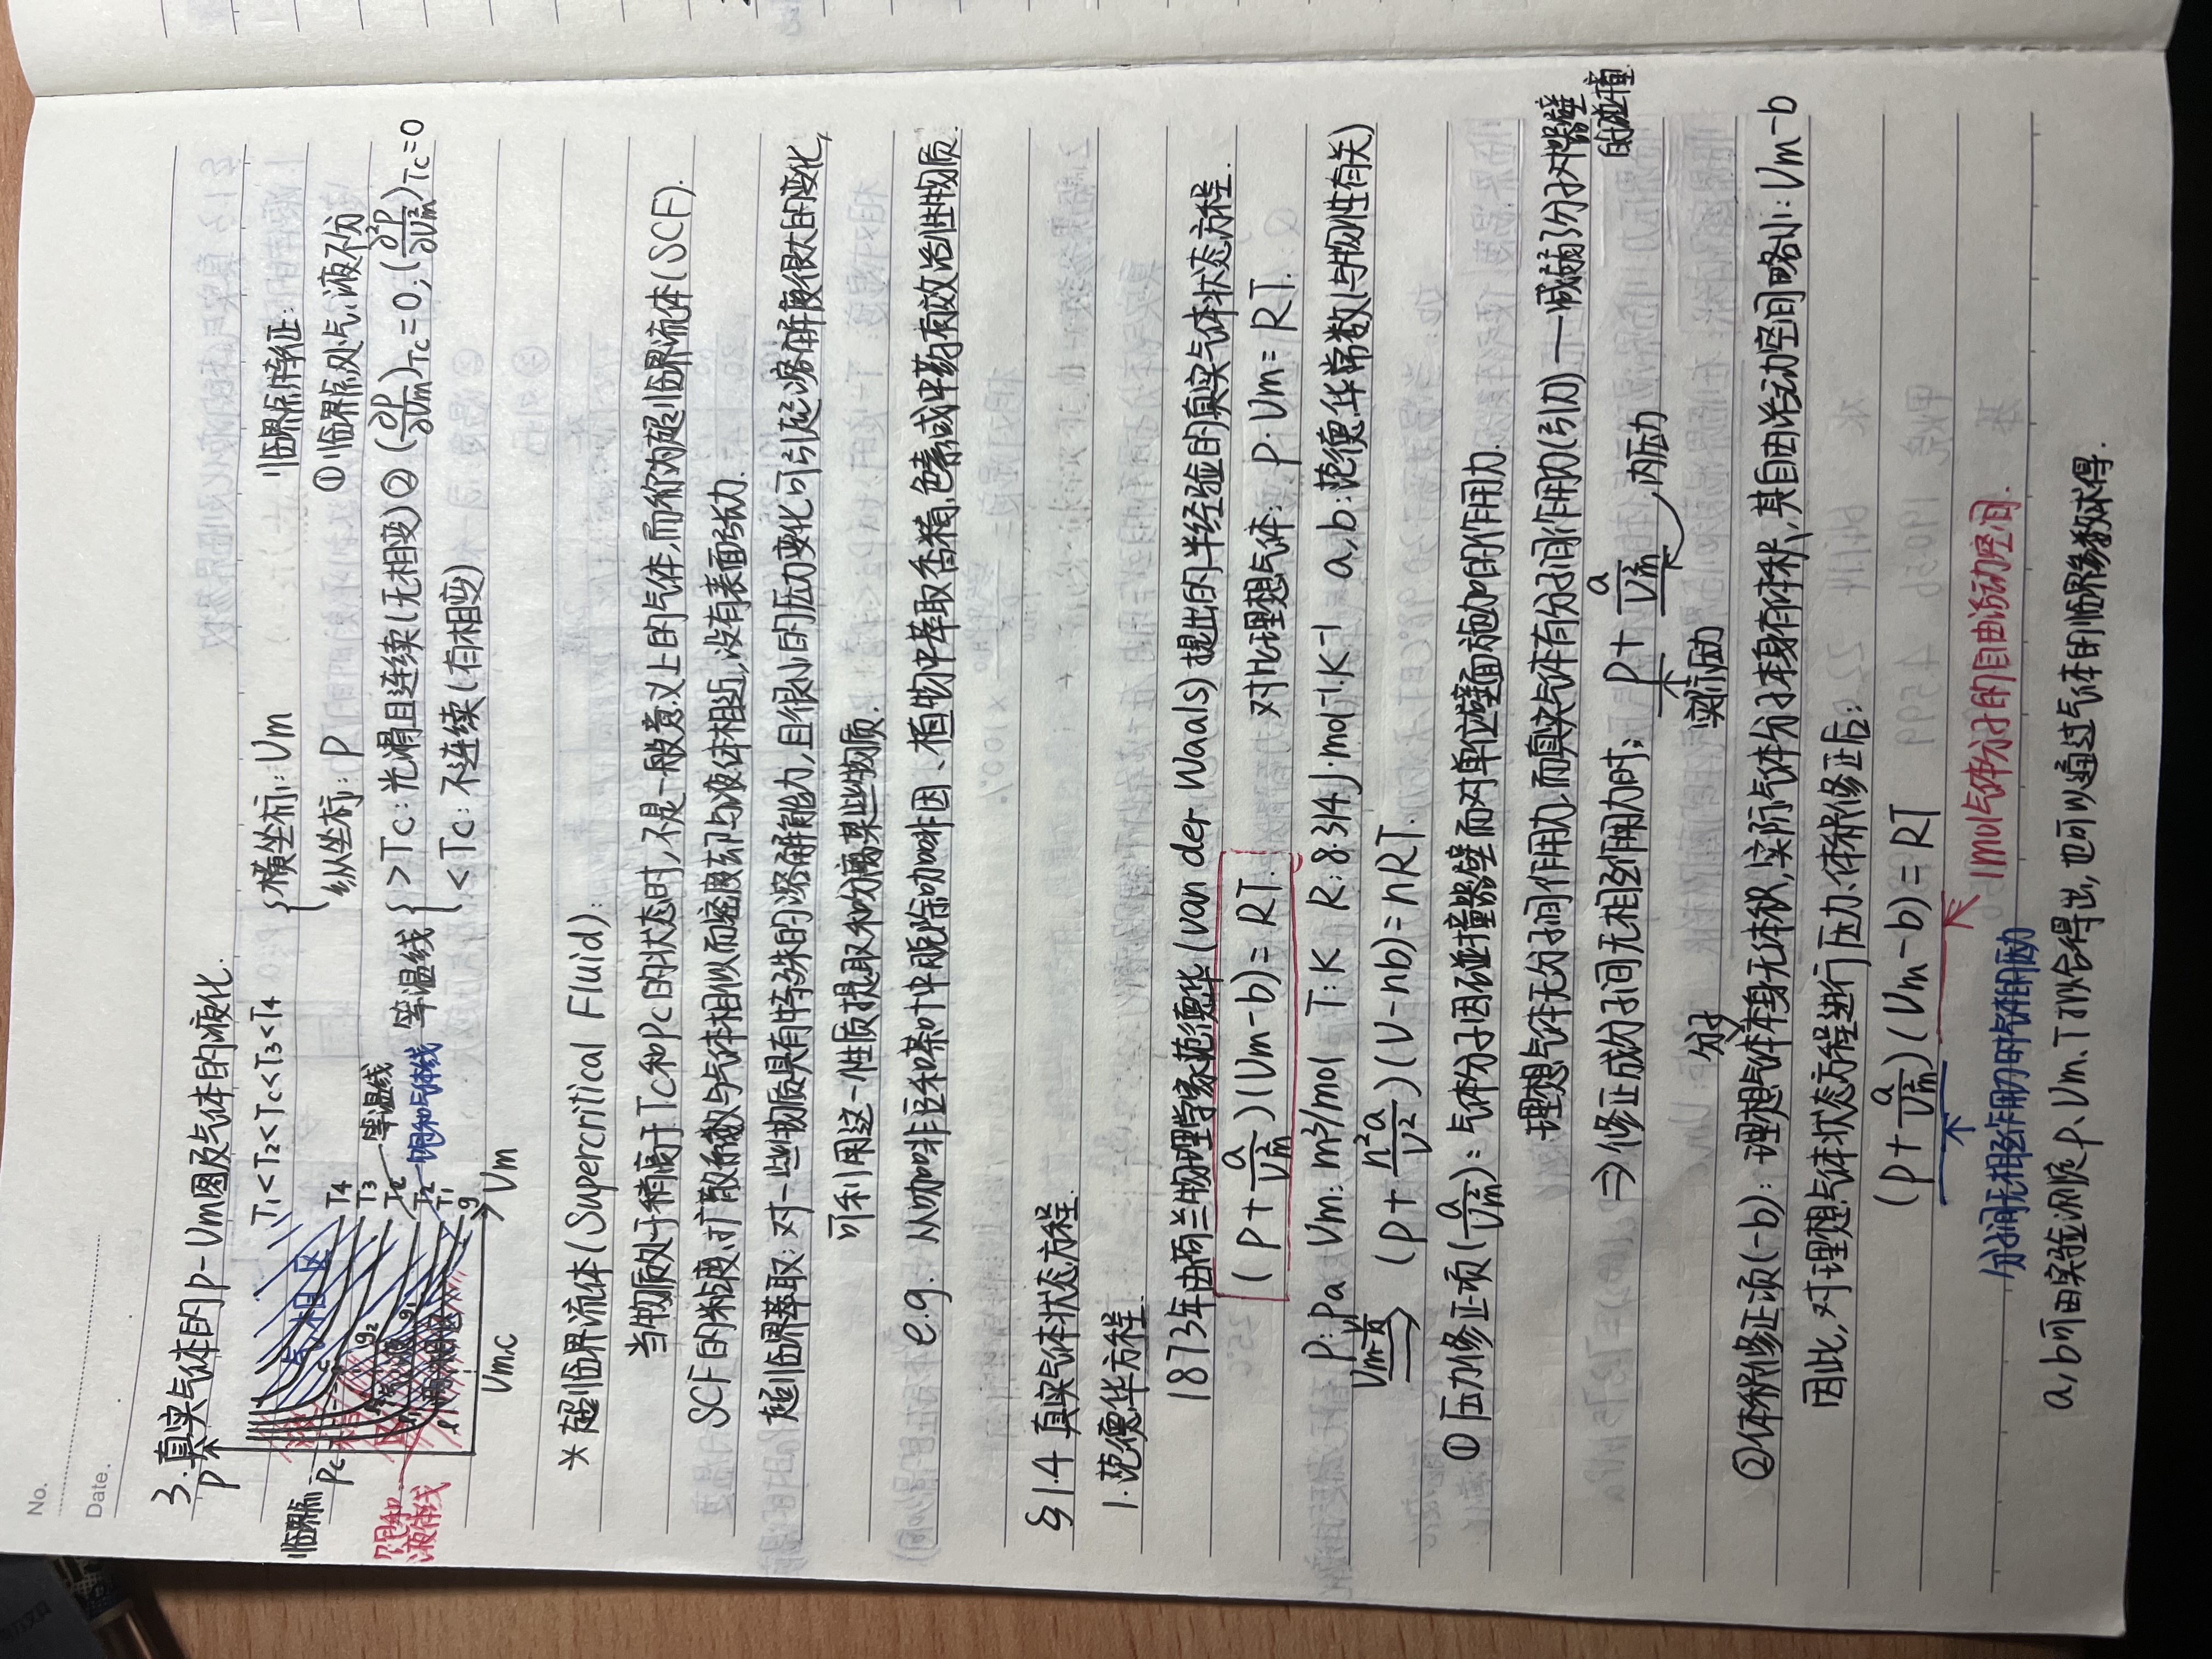 No.
Date.
3.真实气体的p-Vm图及气体的液化.
P
T₁<T₂<Tc<T₃<T₄
临界点
Pc
气相区
c
g₂
g₁
T₄
T₃
Tc
T₂
T₁
g
等温线
饱和气体线
饱和
液体线
两相区
l
Vm,c
Vm
横坐标:Vm
纵坐标:P
等温线
>Tc:光滑且连续(无相变)
<Tc:不连续(有相变)
临界点特征:
①临界点处气、液不分
②(∂P/∂Vm)Tc=0;(∂²P/∂Vm²)Tc=0
*超临界流体(Supercritical Fluid):
当物质处于稍高于Tc和Pc的状态时,不是一般意义上的气体,而称为超临界流体(SCF).
SCF的粘度、扩散系数与气体相似而密度却与液体相近,没有表面张力.
超临界萃取:对一些物质具有特殊的溶解能力,且很小的压力变化可引起溶解度很大的变化,
可利用这一性质提取和分离某些物质.
e.g. 从咖啡豆和茶叶中脱除咖啡因、植物中萃取香精、色素或中药有效活性物质.
§1.4 真实气体状态方程.
1.范德华方程.
1873年由荷兰物理学家范德华(van der Waals)提出的半经验的真实气体状态方程.
(P+a/Vm²)(Vm-b)=RT. 对比理想气体: P·Vm=RT.
P:Pa Vm:m³/mol T:K R:8.314J·mol⁻¹·K⁻¹ a,b:范德华常数(与物性有关)
Vm=V/n ⟹ (P+n²a/V²)(V-nb)=nRT.
①压力修正项(a/Vm²):气体分子因碰撞器壁而对单位壁面施加的作用力.
理想气体无分子间作用力,而真实气体有分子间作用力(引力)——减弱了分子对器壁
的碰撞.
⇒修正成分子间无相互作用力时: P+a/Vm²
内压力
实际压力
分子
②体积修正项(-b):理想气体本身无体积,实际气体分子本身有体积,其自由活动空间略小:Vm-b
因此,对理想气体状态方程进行压力、体积修正后:
(P+a/Vm²)(Vm-b)=RT
分子间无相互作用力时气体的压力
1mol气体分子的自由活动空间.
a,b可由实验测定p、Vm、T拟合得出,也可以通过气体的临界参数求得.